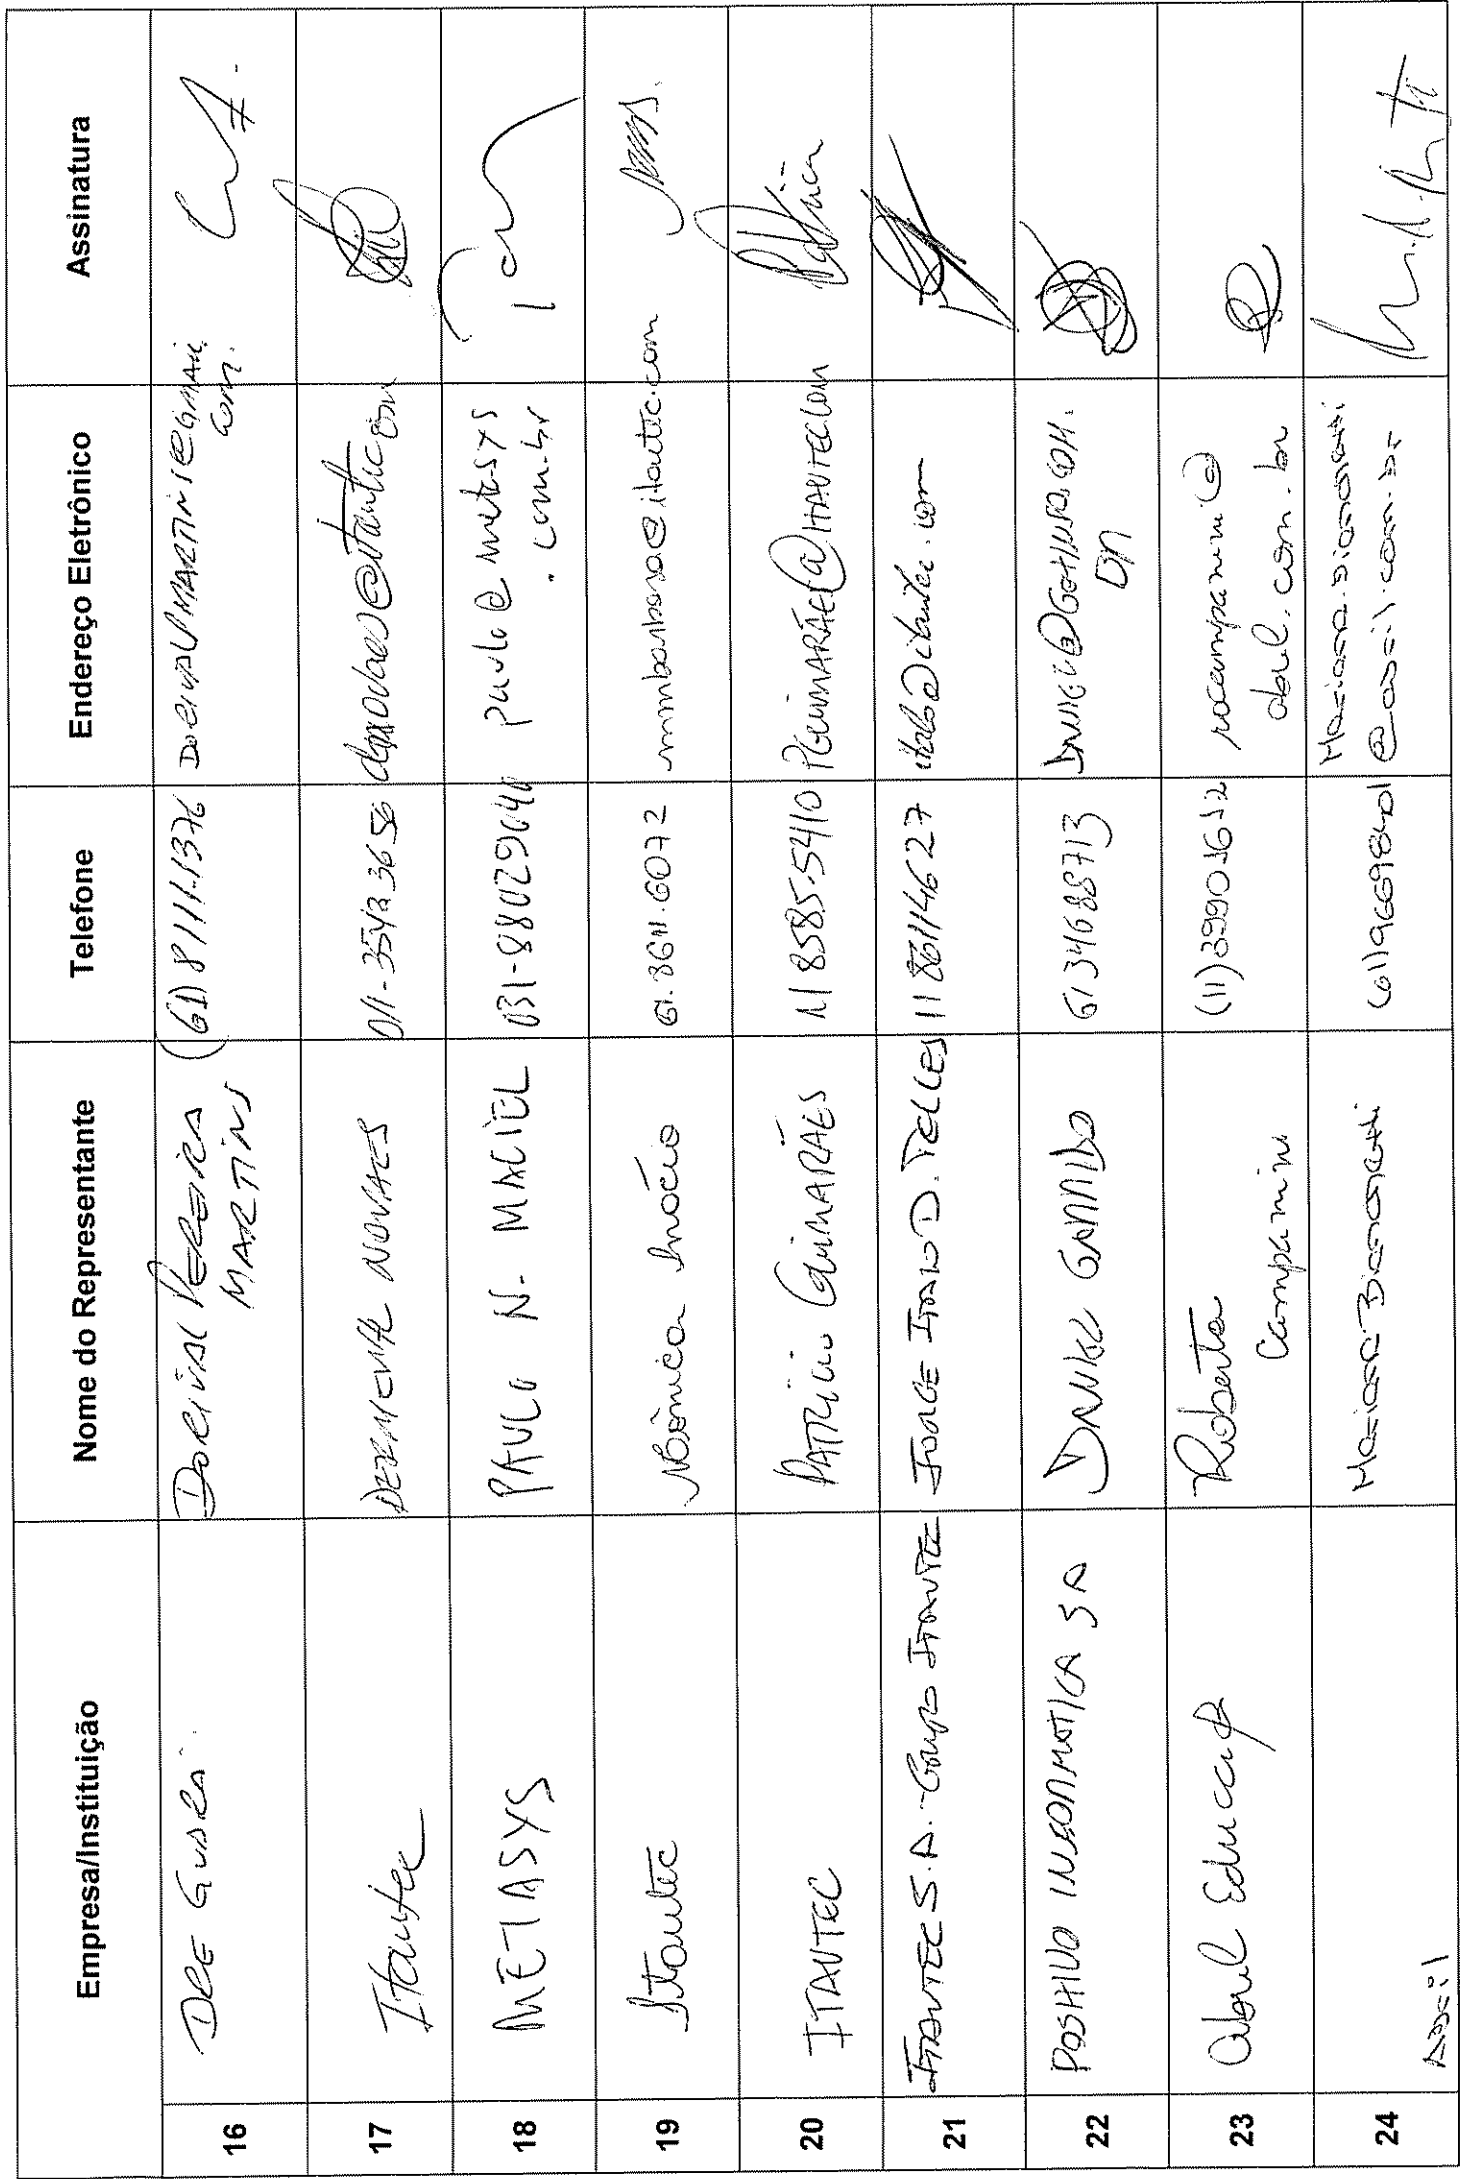 Empresa/Instituição Nome do Representante Telefone Endereço Eletrônico Assinatura
16 DRE GUARÁ DORIVAL PEREIRA (61) 8111.1376 DORIVALMARTINS@GMAIL.
MARTINS com.
17 Itautec DERMEVAL NOVAES 011-3543 3656 dnovaes@itautec.com
18 METASYS PAULO N. MACIEL 031-88029040 paulo@metasys
.com.br
19 Itautec Mônica Inácio 61.3611.6072 mmbarbosa@itautec.com
20 ITAUTEC PATRICIA GUIMARÃES 11 8585-5410 PGUIMARÃES@ITAUTEC.COM
Patrícia
21 ITAUTEC S.A. - Grupo ITAUTEC JORGE ITALO D. TELLES 11 86114627 italo@itautec.com
22 POSITIVO INFORMATICA SA DANIEL GARRIDO 61 34688713 DANIELG@POSITIVO.COM.
BR
23 Abril Educação Roberta (11) 39901612 rocampanini@
Campanini abril.com.br
24 Abril Mariana Bionorati
@abril.com.br